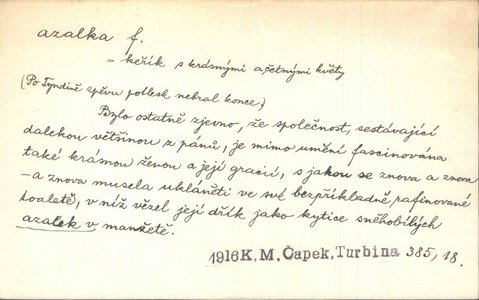 azalka f.
= keřík s krásnými a četnými květy
(Po Tyndině zpěvu potlesk nebral konce.)
Bylo ostatně zjevno, že společnost, sestávající
dalekou většinou z pánů, je mimo umění fascinována
také krásnou ženou a její gracií, s jakou se znova a znova
– a znova musela ukláněti ve své bezpříkladně rafinované
toaletě, v níž vězel její dřík jako kytice sněhobílých
azalek v manžetě.
1916 K, M. Čapek, Turbina 385, 18.